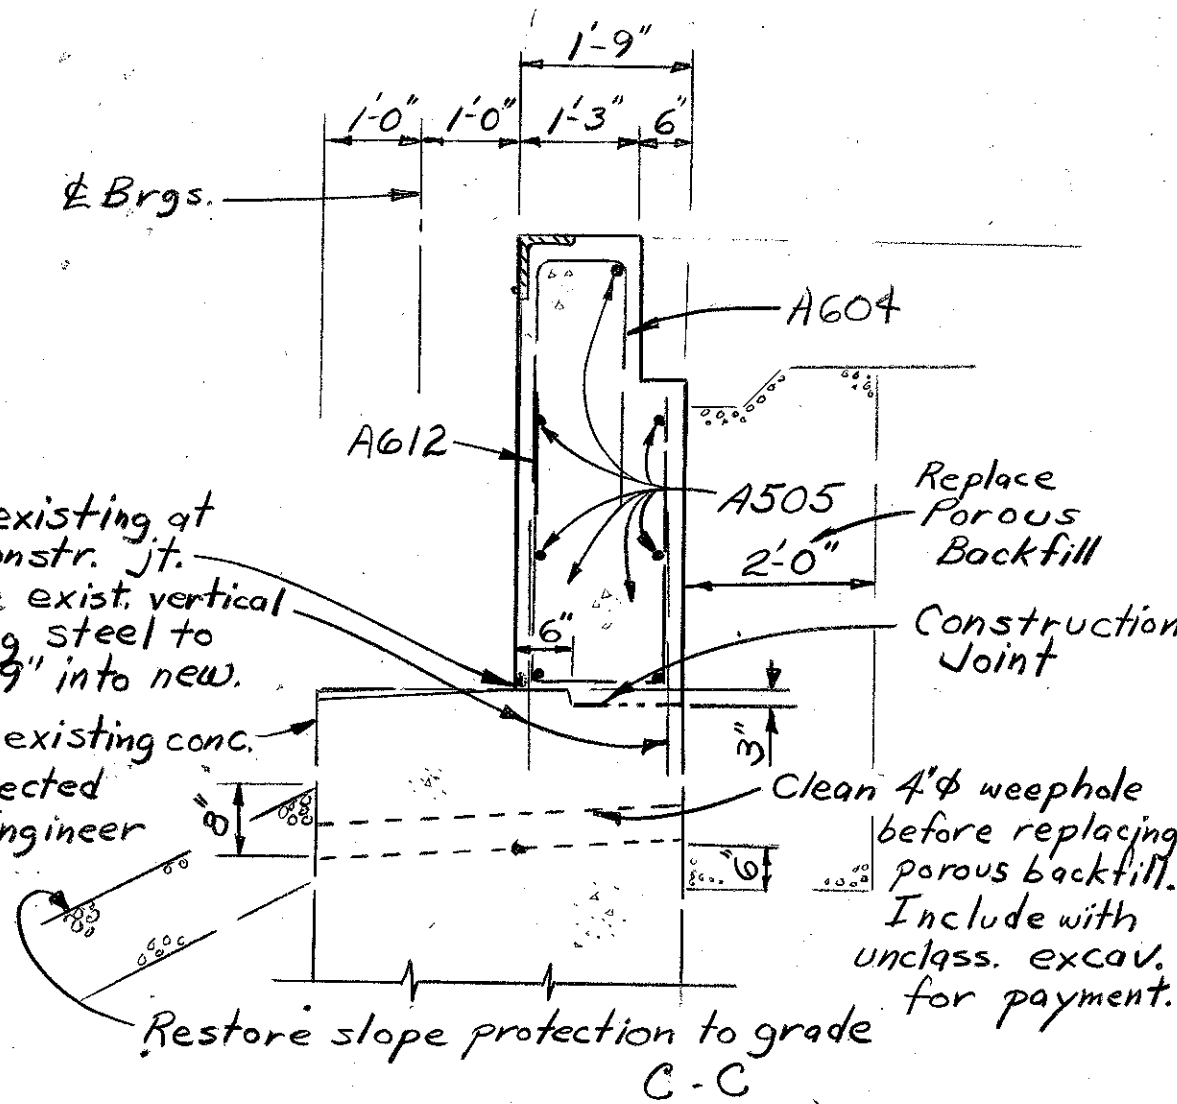 1'-9"
1'-0" 1'-0" 1'-3" 6"
₵ Brgs.
A604
A612
A505
Replace
Porous
Backfill
2'-0"
existing at
constr. jt.
exist. vertical
steel to
9" into new.
6"
Construction
Joint
3"
existing conc.
Engineer
8"
Clean 4"Φ weephole
before replacing
porous backfill.
Include with
unclass. excav.
for payment.
6"
Restore slope protection to grade
C-C